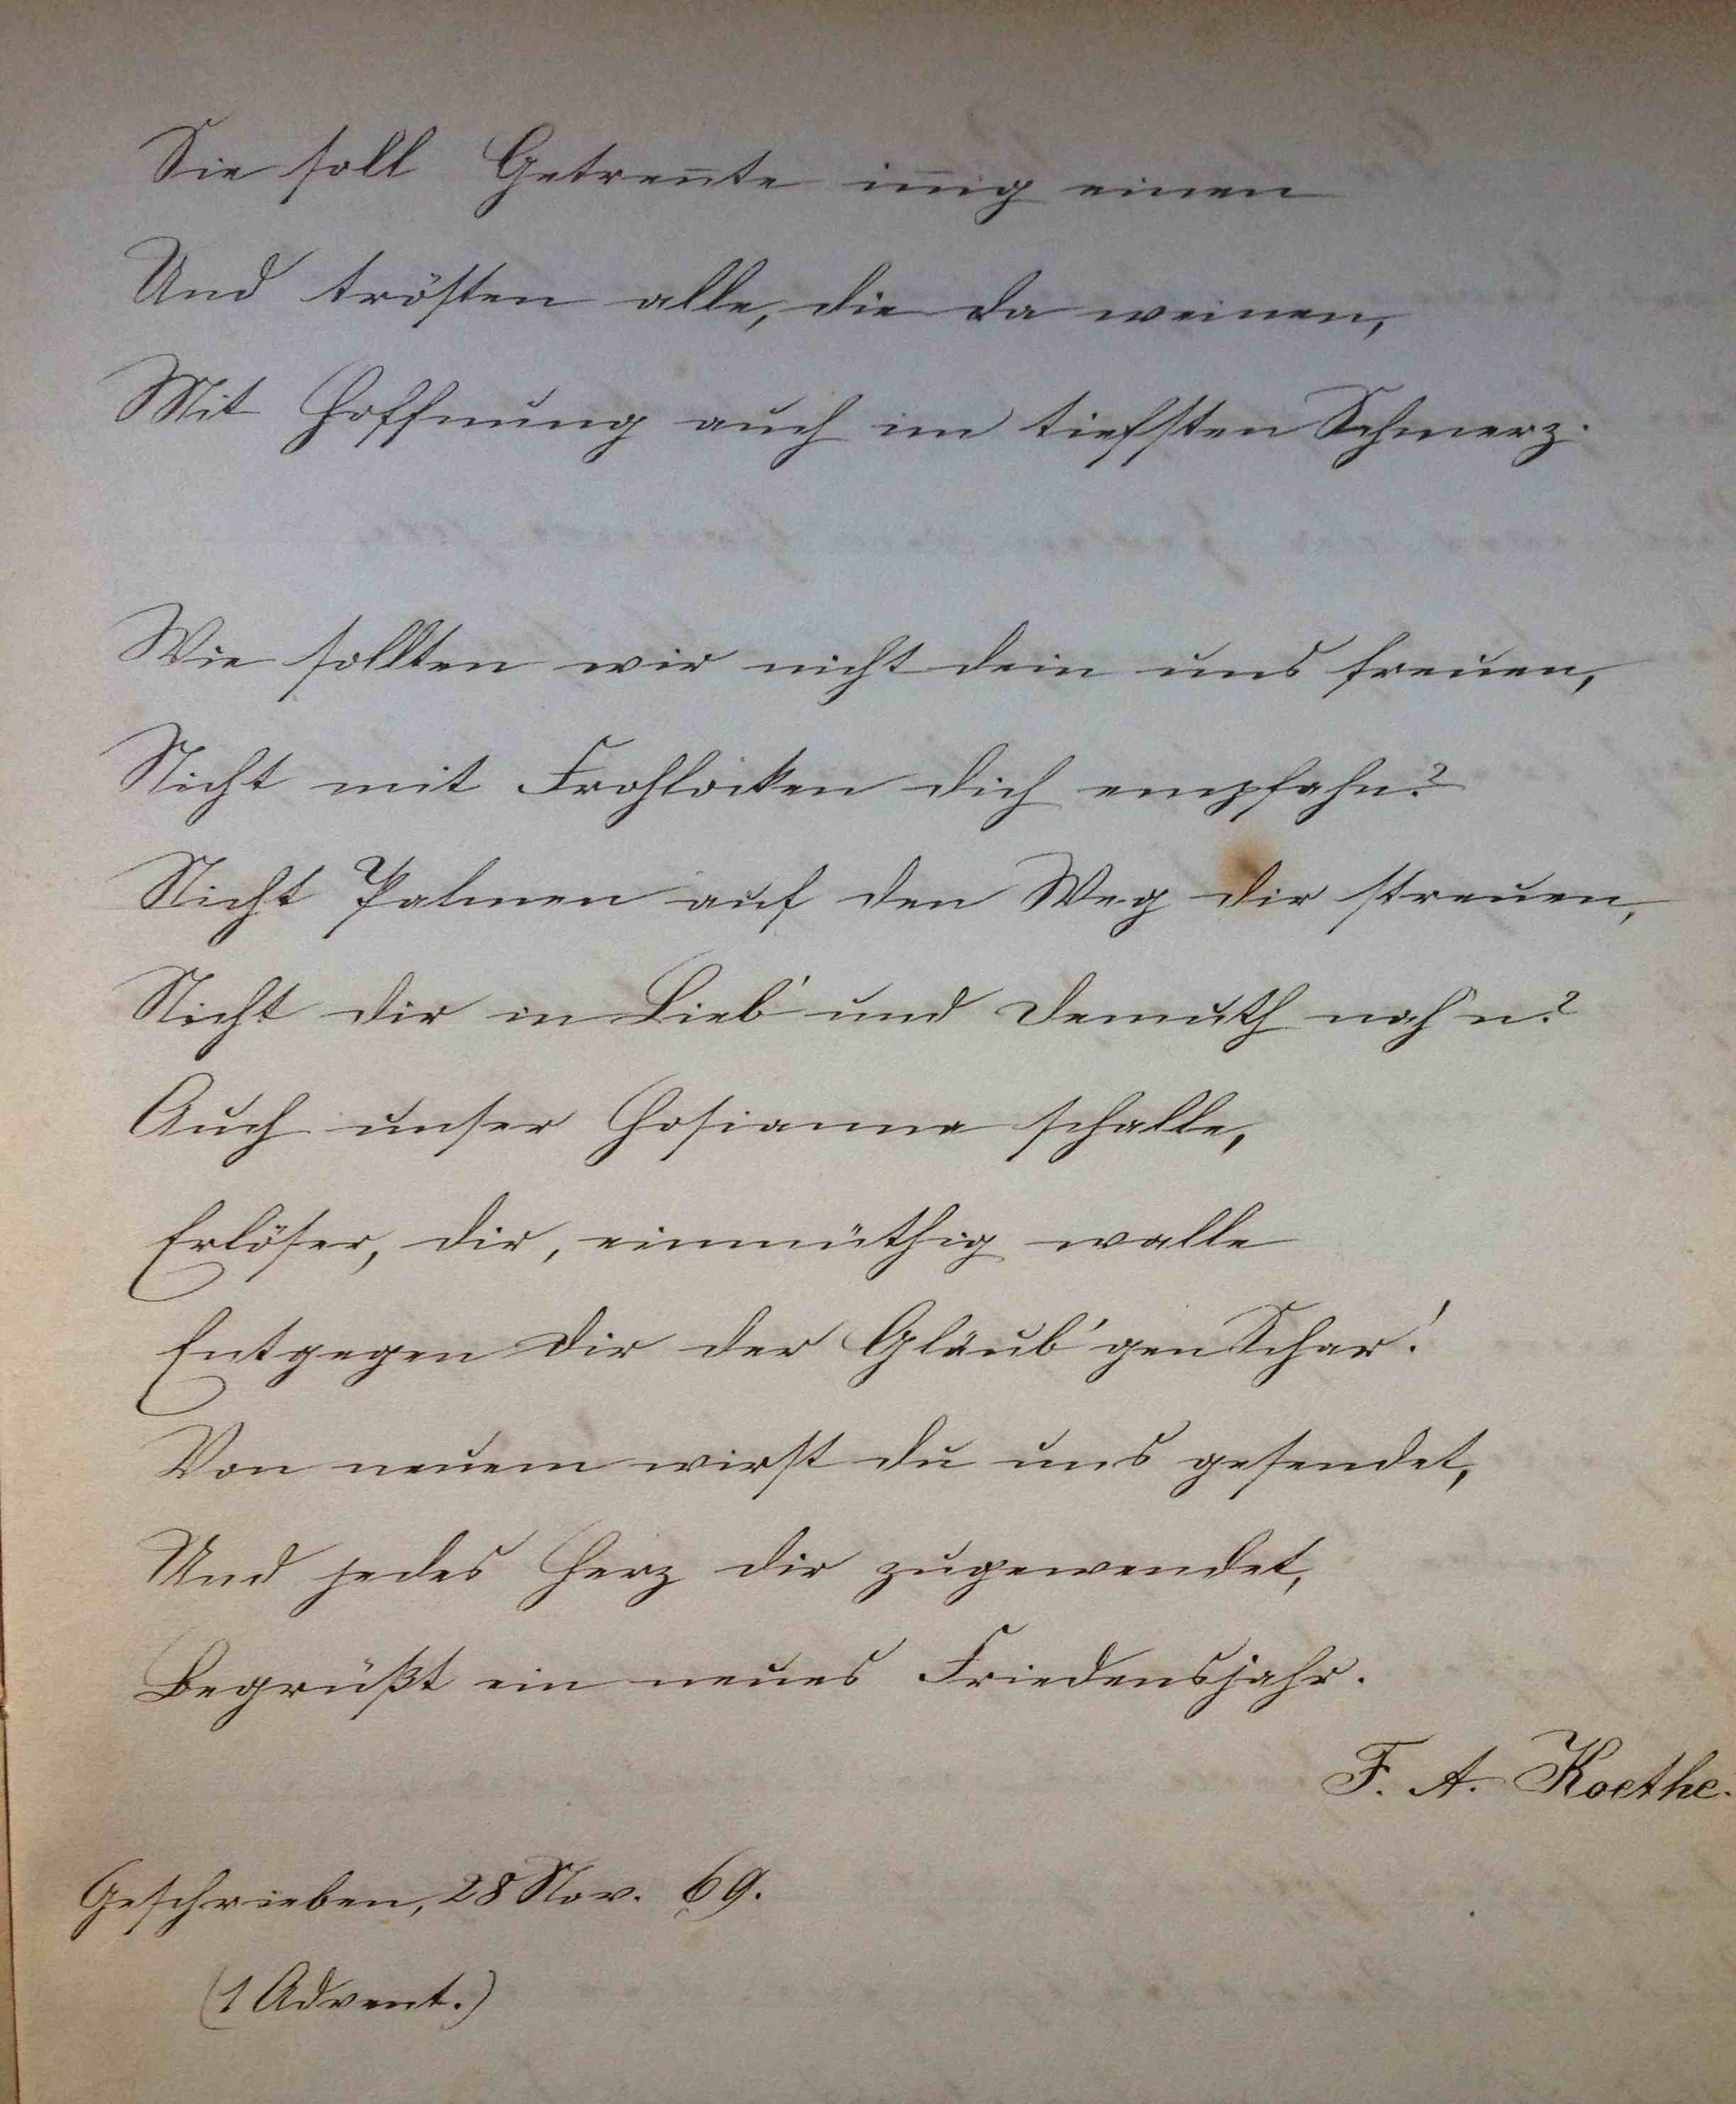 Sie soll Getren̅te in̅ig einen
Und trösten alle, die da weinen,
Mit Hoffnung auch im tiefsten Schmerz.
Wie sollten wir nicht dein uns freuen,
Nicht mit Frohlocken dich empfahn?
Nicht Palmen auf den Weg dir streuen,
Nicht dir in Lieb' und Demuth nah'n?
Auch unser Hosianna schalle,
Erlöser, dir, einmüthig walle
Entgegen dir der Gläub'gen Schar!
Von neuem wirst du uns gesendet,
Und jedes Herz dir zugewendet,
Begrüßt ein neues Friedensjahr.
F. A. Koethe.
Geschrieben, 28 Nov. 69.
(1 Advent.)